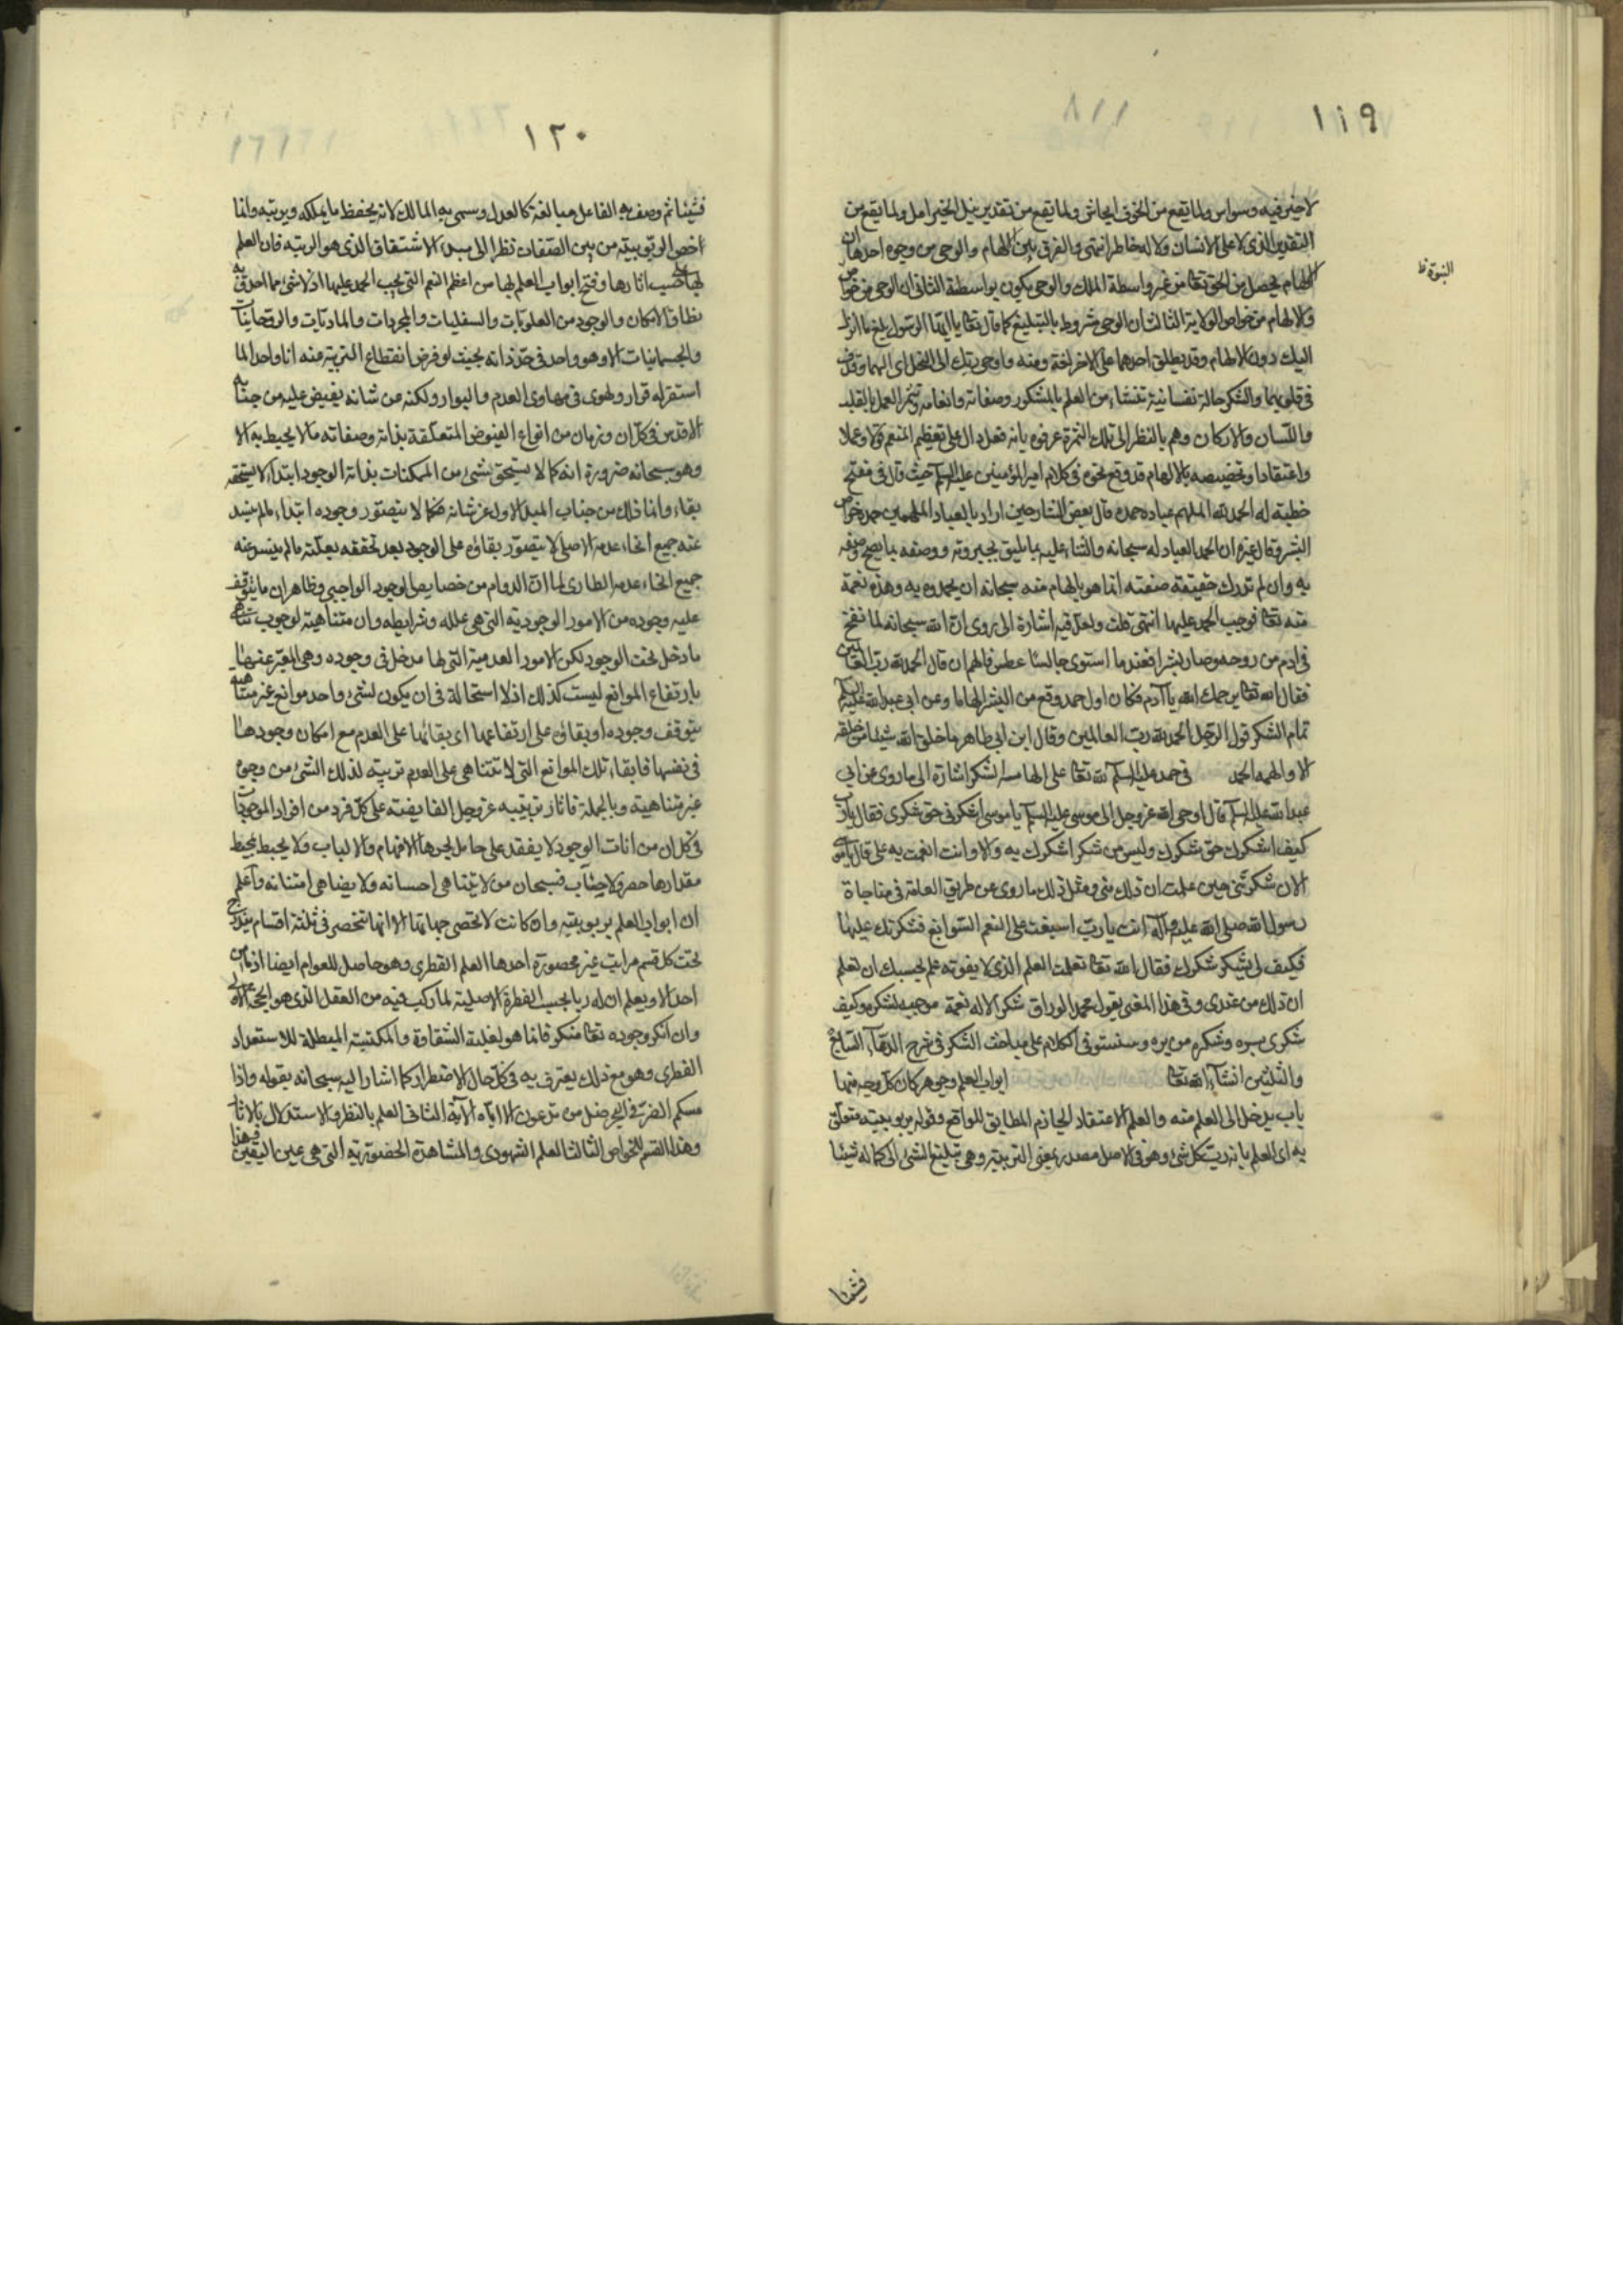 ١١٩
لا خير فيه وسواس ولما يقع من الخوف ايحاش ولما يقع من تقدير نيل الخير امل ولما يقع من
التقدير الذى لا على الانسان ولا له خاطر انتهى والفرق بين الالهام والوحى من وجوه احدها ان
الالهام يحصل من الحق تعالى من غير واسطة الملك والوحى يكون بواسطته الثانى ان الوحى من خواص
النبوة ظ
والالهام من خواص الولاية الثالث ان الوحى مشروط بالتبليغ كما قال تعالى يا ايها الرسول بلغ ما انزل
اليك دون الالهام وقد يطلق احدهما على الاخر لغة ومنه واوحى ربك الى النحل اى الهمها وقذف
فى قلوبها والشكر حالة نفسانية تنشاء من العلم بالمشكور وصفاته وانعامه وتثمر العمل بالقلب
واللسان والاركان وهم بالنظر الى تلك الثمرة عرفوه بانه فعل دال على تعظيم المنعم قولا وعملا
واعتقادا وتخصيصه بالالهام قد وقع نحوه فى كلام امير المؤمنين عليه السلم حيث قال فى مفتح
خطبة له الحمد لله الملهم عباده حمده قال بعض الشارحين اراد بالعباد الملهمين حمده خواص
البشر وقال غيره ان الحمد العباد له سبحانه والثناء عليه بما يليق بجبروته ووصفه بما يصح وصفه
به وان لم تدرك حقيقة صفته انما هو بالهام منه سبحانه ان يحمدوه به وهذه نعمة
منه تعالى فوجب الحمد عليها انتهى قلت ولعل فيه اشارة الى ما روى ان الله سبحانه لما نفخ
فى ادم من روحه وصار بشرا فعند ما استوى جالسا عطس فالهم ان قال الحمد لله رب العالمين
فقال الله تعالى يرحمك الله يا آدم فكان اول حمد وقع من البشر الهاما وعن ابى عبد الله عليه السلم
تمام الشكر قول الرجل الحمد لله رب العالمين وقال ابن ابى طاهر ما خلق الله شيئا من خلقه
الا والهمه الحمد فى حمده عليه السلم لله تعالى على الهامه الشكر اشارة الى ما روى عن ابى
عبد الله عليه السلم قال اوحى الله عز وجل الى موسى عليه السلم يا موسى اشكرنى حق شكرى فقال يا رب
كيف اشكرك حق شكرك وليس من شكر اشكرك به الا وانت انعمت به على قال يا موسى
الان شكرتنى حين علمت ان ذلك منى ومثل ذلك ما روى عن طريق العامة فى مناجاة
رسول الله صلى الله عليه وآله انت يا رب اسبغت على النعم السوابغ فشكرتك عليها
فكيف لى بشكر شكرك فقال الله تعالى تعلمت العلم الذى لا يفوته علم بحسبك ان تعلم
ان ذلك من عندى وفى هذا المعنى يقول محمود الوراق شكر الاله نعمة موجبه لشكره وكيف
شكرى بره وشكره من بره وسنستوفى الكلام على مباحث الشكر فى شرح الدعاء السابع
والثلثين انشآء الله تعالى ابواب العلم وجوهر كان كل وجه منها
باب يدخل الى العلم منه والعلم الاعتقاد الجازم المطابق للواقع وقوله بربوبيته متعلق
به اى العلم بانه رب كل شئ وهو فى الاصل مصدر بمعنى التربية وهى تبليغ الشئ الى كماله شيئا
فشيئا
١٢٠
فشيئا ثم وصف به الفاعل مبالغة كالعدل ويسمى به المالك لانه يحفظ ما يملكه ويربيه وانما
اخص الربوبية من بين الصفات نظرا الى مبدء الاشتقاق الذى هو التربية فان العلم
بها حسب اثارها وفتح ابواب العلم بها من اعظم النعم التى يجب الحمد عليها اذ لا شئ مما احدق به
نطاق الامكان والوجود من العلويات والسفليات والمجردات والماديات والروحانيات
والجسمانيات الا وهو واحد فى حد ذاته بحيث لو فرض انقطاع التربية منه انا واحدا لما
استقر له قرار ولهوى فى مهاوى العدم والبوار ولكنه من شانه يفيض عليه من جنابه
الاقدس فى كل ان وزمان من انواع الفيوض المتعلقة بذاته وصفاته ما لا يحيط به الا
وهو سبحانه ضرورة انه كما لا يستحق شئ من الممكنات بذاته الوجود ابتداء لا يستحقه
بقاء وانما ذلك من جناب المبدء الاول عز شانه فكما لا يتصور وجوده ابتداء ما لم ينسد
عنه جميع انحاء عدمه الاصلى لا يتصور بقاؤه على الوجود بعد تحققه بعلته ما لم ينسد عنه
جميع انحاء عدمه الطارى لما ان الدوام من خصايص الوجود الواجبى وظاهر ان ما يتوقف
عليه وجوده من الامور الوجودية التى هى علله وشرايطه وان متناهية لوجوب تناهى
ما دخل تحت الوجود لكن الامور العدمية التى لها مدخل فى وجوده وهى المعبر عنها
بارتفاع الموانع ليست كذلك اذ لا استحالة فى ان يكون لشئ واحد موانع غير متناهية
يتوقف وجوده او بقاؤه على ارتفاعها اى بقائها على العدم مع امكان وجودها
فى نفسها فابقاء تلك الموانع التى لا تتناهى على العدم تربية لذلك الشئ من وجوه
غير متناهية وبالجملة فاثار تربيته عز وجل الفايضة على كل فرد من افراد الموجودات
فى كل ان من انات الوجود لا يفقد على حامل بحرها الافهام والالباب ولا يحيط بمحيط
مقدارها حصر ولا حساب فسبحان من لا يتناهى احسانه ولا يضاهى امتنانه واعلم
ان ابواب العلم بربوبيته وان كانت لا تحصى جهاتها الا انها تنحصر فى ثلثة اقسام يندرج
تحت كل قسم مراتب غير محصورة احدها العلم الفطرى وهو حاصل للعوام ايضا اذ ما من
احد الا ويعلم ان له ربا بحسب الفطرة الاصلية لما ركب فيه من العقل الذى هو الحجة الاولى
وان انكر وجوده تعالى منكر فانما هو لغلبة الشقاوة والمكتسبة المبطلة للاستعداد
الفطرى وهو مع ذلك يعترف به فى كل حال الاضطرار كما اشار اليه سبحانه بقوله واذا
مسكم الضر فى البحر ضل من تدعون الا اياه الآية الثانى العلم بالنظر والاستدلال بالاثار
وهذا القسم للخواص الثالث العلم الشهودى والمشاهدة الحضورية التى هى عين اليقين